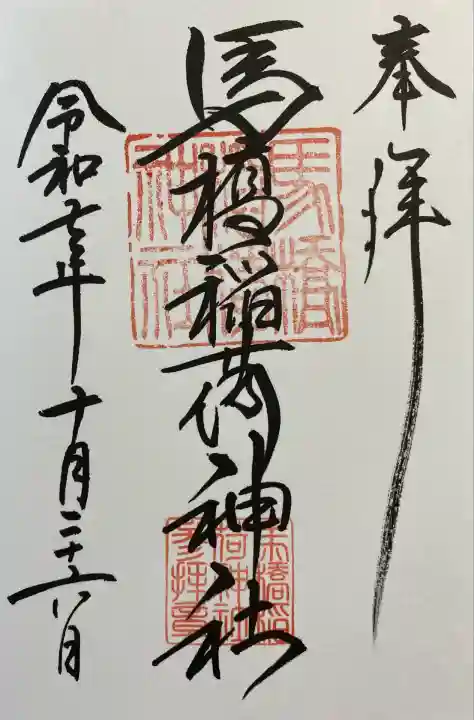 奉拝
馬橋稲荷神社
令和七年十月二十六日
馬橋
稲荷
神社
馬橋稲
荷神社